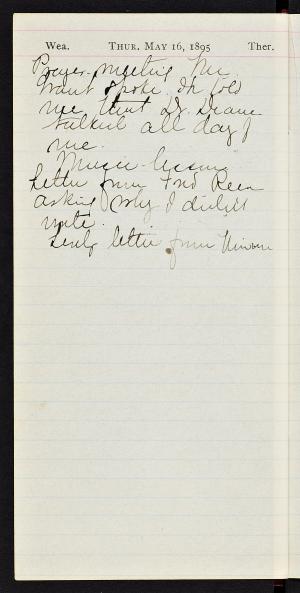 Wea. THUR. MAY 16, 1895 Ther.
Prayer-meeting Mr.
Grant spoke. He told
me that Dr. Deane
talked all day of
me.
Music-lesson
Letter from Fred
asking why I didn't
write.
letter from